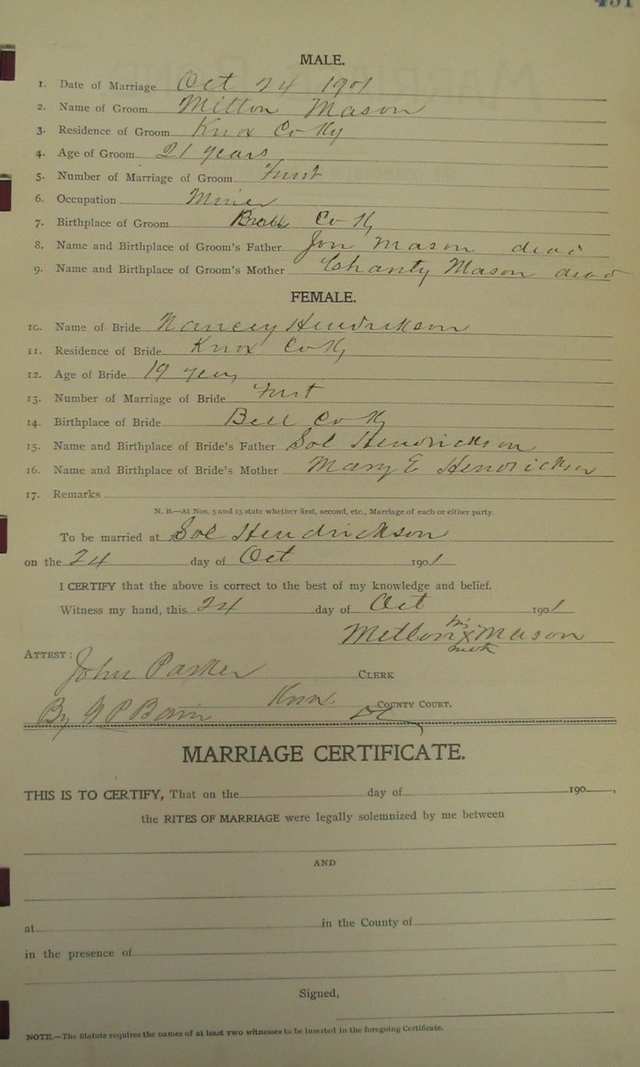 MALE.
1. Date of Marriage Oct 24 1901
2. Name of Groom Milton Mason
3. Residence of Groom Knox Co Ky
4. Age of Groom 21 years
5. Number of Marriage of Groom First
6. Occupation Miner
7. Birthplace of Groom Co Ky
8. Name and Birthplace of Groom's Father Mason dead
9. Name and Birthplace of Groom's Mother Charity Mason dead
FEMALE.
10. Name of Bride Nancey Hendrickson
11. Residence of Bride Knox Co Ky
12. Age of Bride 19 years
13. Number of Marriage of Bride First
14. Birthplace of Bride Bell Co Ky
15. Name and Birthplace of Bride's Father Sol Hendrickson
16. Name and Birthplace of Bride's Mother Mary E Hendrickson
17. Remarks
N. B.—At Nos. 5 and 13 state whether first, second, etc., Marriage of each or either party.
To be married at Sol Hendrickson
on the 24 day of Oct 1901
I CERTIFY that the above is correct to the best of my knowledge and belief.
Witness my hand, this 24 day of Oct 1901
his
Milton X Mason
mark
ATTEST: John Parker CLERK
Knox COUNTY COURT.
By G P Bain DC
MARRIAGE CERTIFICATE.
THIS IS TO CERTIFY, That on the day of 190 ,
the RITES OF MARRIAGE were legally solemnized by me between
AND
at in the County of
in the presence of
Signed,
NOTE.—The Statute requires the names of at least two witnesses to be inserted in the foregoing Certificate.